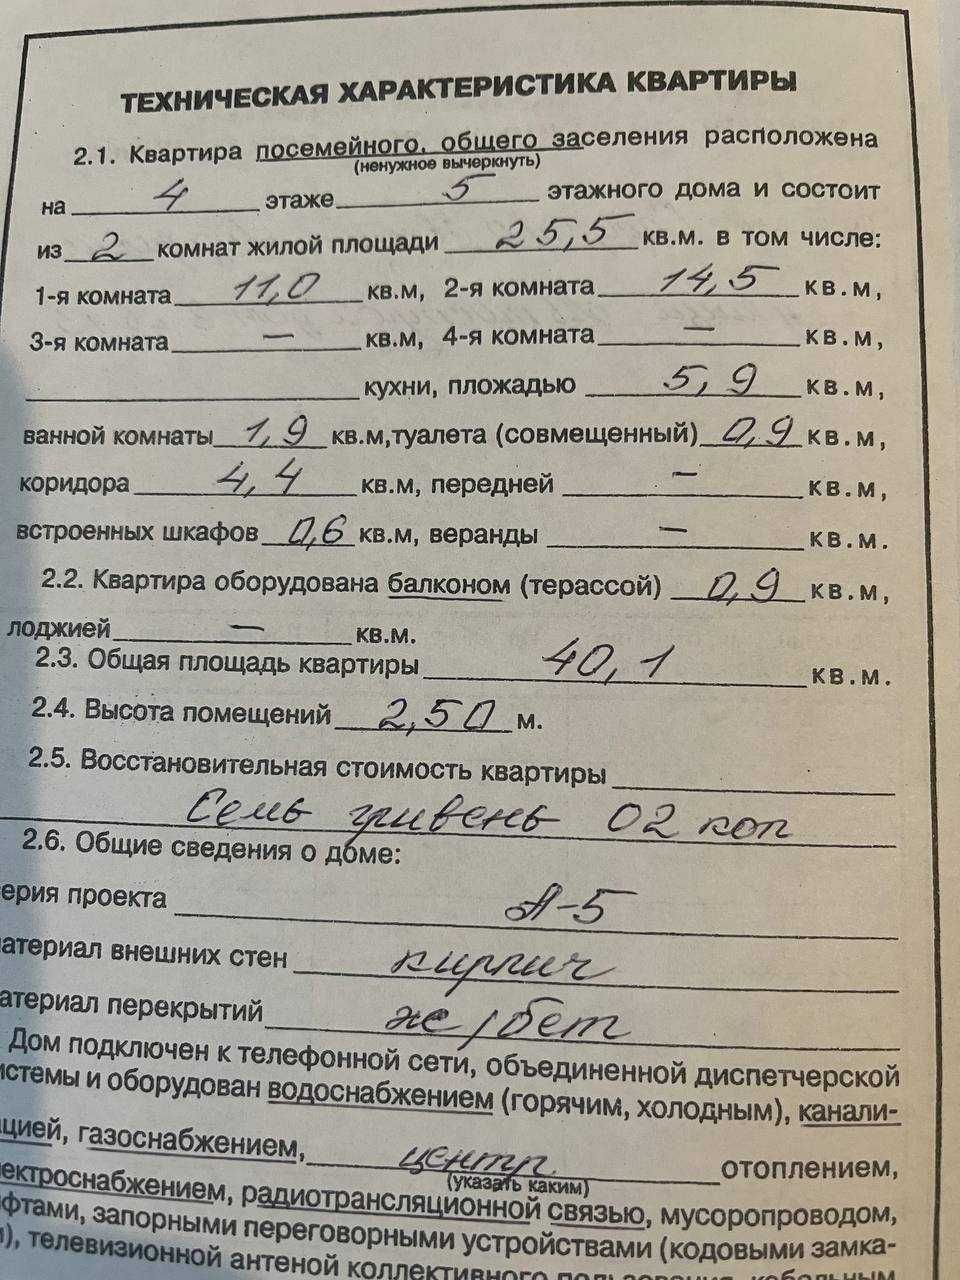 ТЕХНИЧЕСКАЯ ХАРАКТЕРИСТИКА КВАРТИРЫ
2.1. Квартира посемейного, общего заселения расположена
(ненужное вычеркнуть)
на 4 этаже 5 этажного дома и состоит
из 2 комнат жилой площади 25,5 кв.м. в том числе:
1-я комната 11,0 кв.м, 2-я комната 14,5 кв.м,
3-я комната — кв.м, 4-я комната — кв.м,
кухни, пложадью 5,9 кв.м,
ванной комнаты 1,9 кв.м,туалета (совмещенный) 0,9 кв.м,
коридора 4,4 кв.м, передней — кв.м,
встроенных шкафов 0,6 кв.м, веранды — кв.м.
2.2. Квартира оборудована балконом (терассой) 0,9 кв.м,
лоджией — кв.м.
2.3. Общая площадь квартиры 40,1 кв.м.
2.4. Высота помещений 2,50 м.
2.5. Восстановительная стоимость квартиры
Семь гривень 02 коп
2.6. Общие сведения о доме:
ерия проекта А-5
атериал внешних стен кирпич
атериал перекрытий же/бет
Дом подключен к телефонной сети, объединенной диспетчерской
истемы и оборудован водоснабжением (горячим, холодным), канали-
цией, газоснабжением, центр. отоплением,
(указать каким)
ектроснабжением, радиотрансляционной связью, мусоропроводом,
фтами, запорными переговорными устройствами (кодовыми замка-
), телевизионной антеной коллективного пользования, кабельным